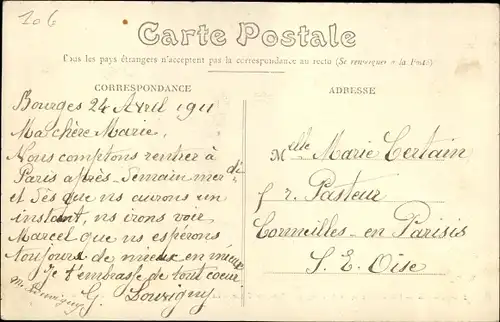 206
Carte Postale
Tous les pays étrangers n'acceptent pas la correspondance au recto (Se renseigner à la Poste)
CORRESPONDANCE
Bourges 24 Avril 1911
Ma chère Marie,
Nous comptons rentrer à
Paris après-demain mercredi
et dès que ns aurons un
instant, ns irons voir
Marcel que ns espérons
toujours de mieux en mieux
Je t'embrasse de tout coeur
G. Louvigny
M. Louvigny
ADRESSE
Melle Marie Certain
r. Pasteur
Cormeilles-en Parisis
S. E. Oise